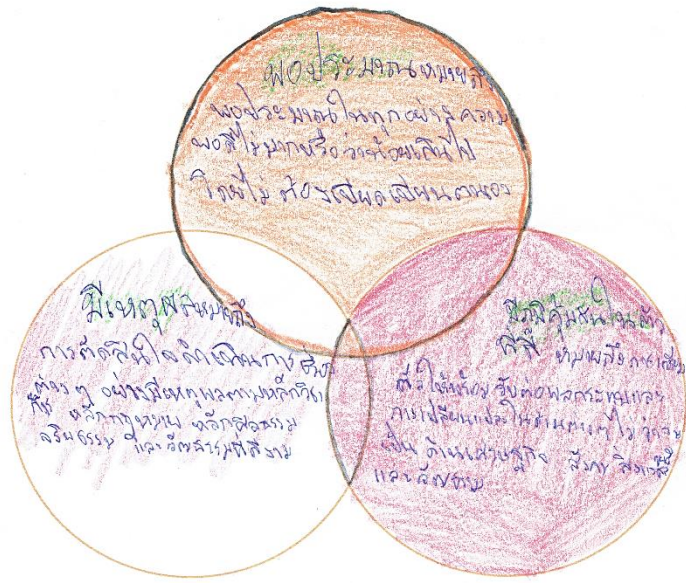 พอประมาณหมายถึ
พอประมาณในทุกอย่าง ความ
พอดีไม่มากหรือว่าน้อยเกินไป
โดยไม่ต้องเบียดเบียนตนเอง
มีเหตุผลหมายถึง
การตัดสินใจดำเนินการ
ต่างๆ อย่างมีเหตุผลตามหลักวิชา
การ หลักกฎหมาย หลักศีลธรรม
จริยธรรม และวัฒธรรมที่ดีงาม
มีภูมิคุ้มกันในตัว
ที่ดี หมายถึง การเตรียม
ตัวให้พร้อม รับต่อผลกระทบและ
การเปลี่ยนแปลงในด้านต่างๆ ไม่ว่าจะ
เป็น ด้านเศรษฐกิจ สังคม สิ่งแวดล้อม
และ